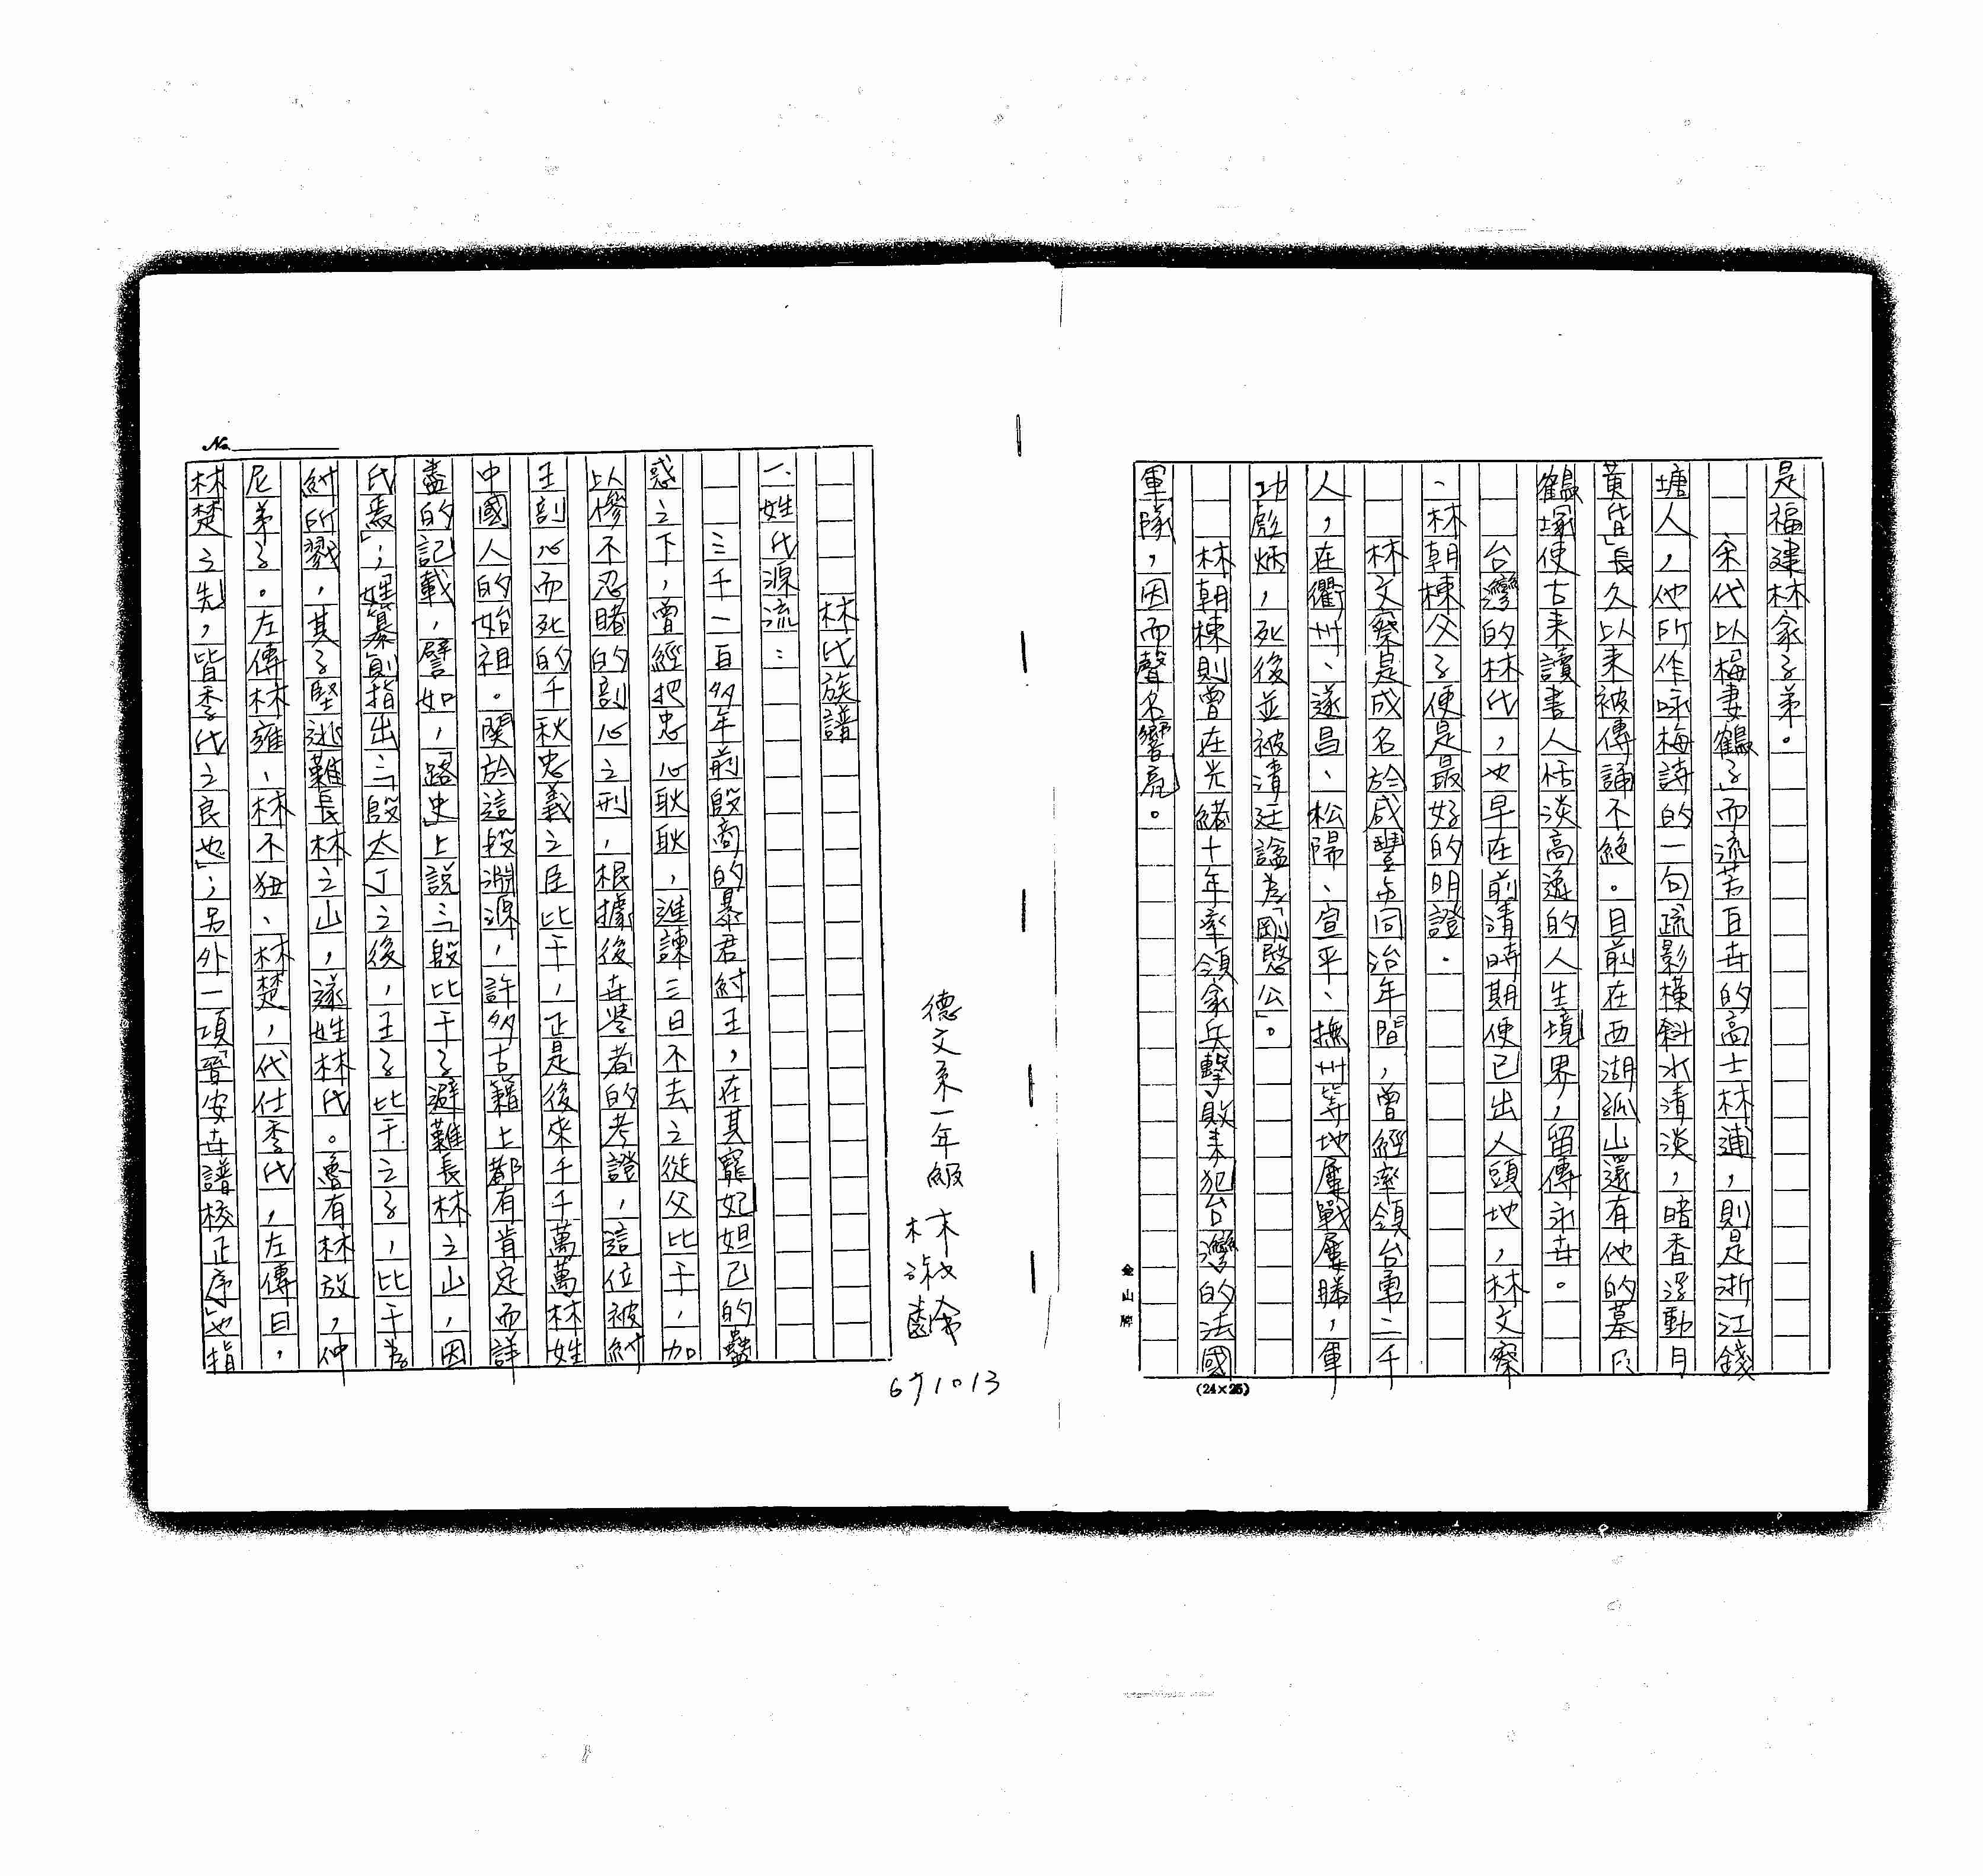 是福建林家子弟。
宋代以「梅妻鶴子」而流芳百世的高士林逋，則是浙江錢
塘人，他所作咏梅詩的一句「疏影橫斜水清淡，暗香浮動月
黃昏」長久以來被傳誦不絕。目前在西湖孤山還有他的墓
鶴塚使古來讀書人恬淡高逸的人生境界，留傳永世。
台灣的林氏，也早在前清時期便已出人頭地，林文察
、林朝棟父子便是最好的明證。
林文察是成名於咸豐與同治年間，曾經率領台勇二千
人，在衢州、遂昌、松陽、宣平、撫州等地屢戰屢勝，軍
功彪炳，死後並被清廷諡為「剛愍公」。
林朝棟則曾在光緒十年率領家兵擊敗來犯台灣的法國
軍隊，因而聲名響亮。
金山牌
(24×25)
德文系一年級
671013
No.
林氏族譜
一、姓氏源流：
三千一百多年前殷商的暴君紂王，在其寵妃妲己的蠱
惑之下，曾經把忠心耿耿，進諫三日不去之從父比干，加
以慘不忍睹的剖心之刑，根據後世學者的考證，這位被紂
王剖心而死的千秋忠義之臣比干，正是後來千千萬萬林姓
中國人的始祖。關於這段淵源，許多古籍上都有肯定而詳
盡的記載，譬如，「路史」上說：「殷比干子避難長林之山，因
氏焉」；「姓纂」則指出：「殷太丁之後，王子比干之子，比干為
紂所戮，其子堅逃難長林之山，遂姓林氏。魯有林放，仲
尼弟子。左傳林雍、林不狃、林楚，代仕季氏，左傳曰，
林楚之先，皆季氏之良也」；另外一項「晉安世譜校正序」也指